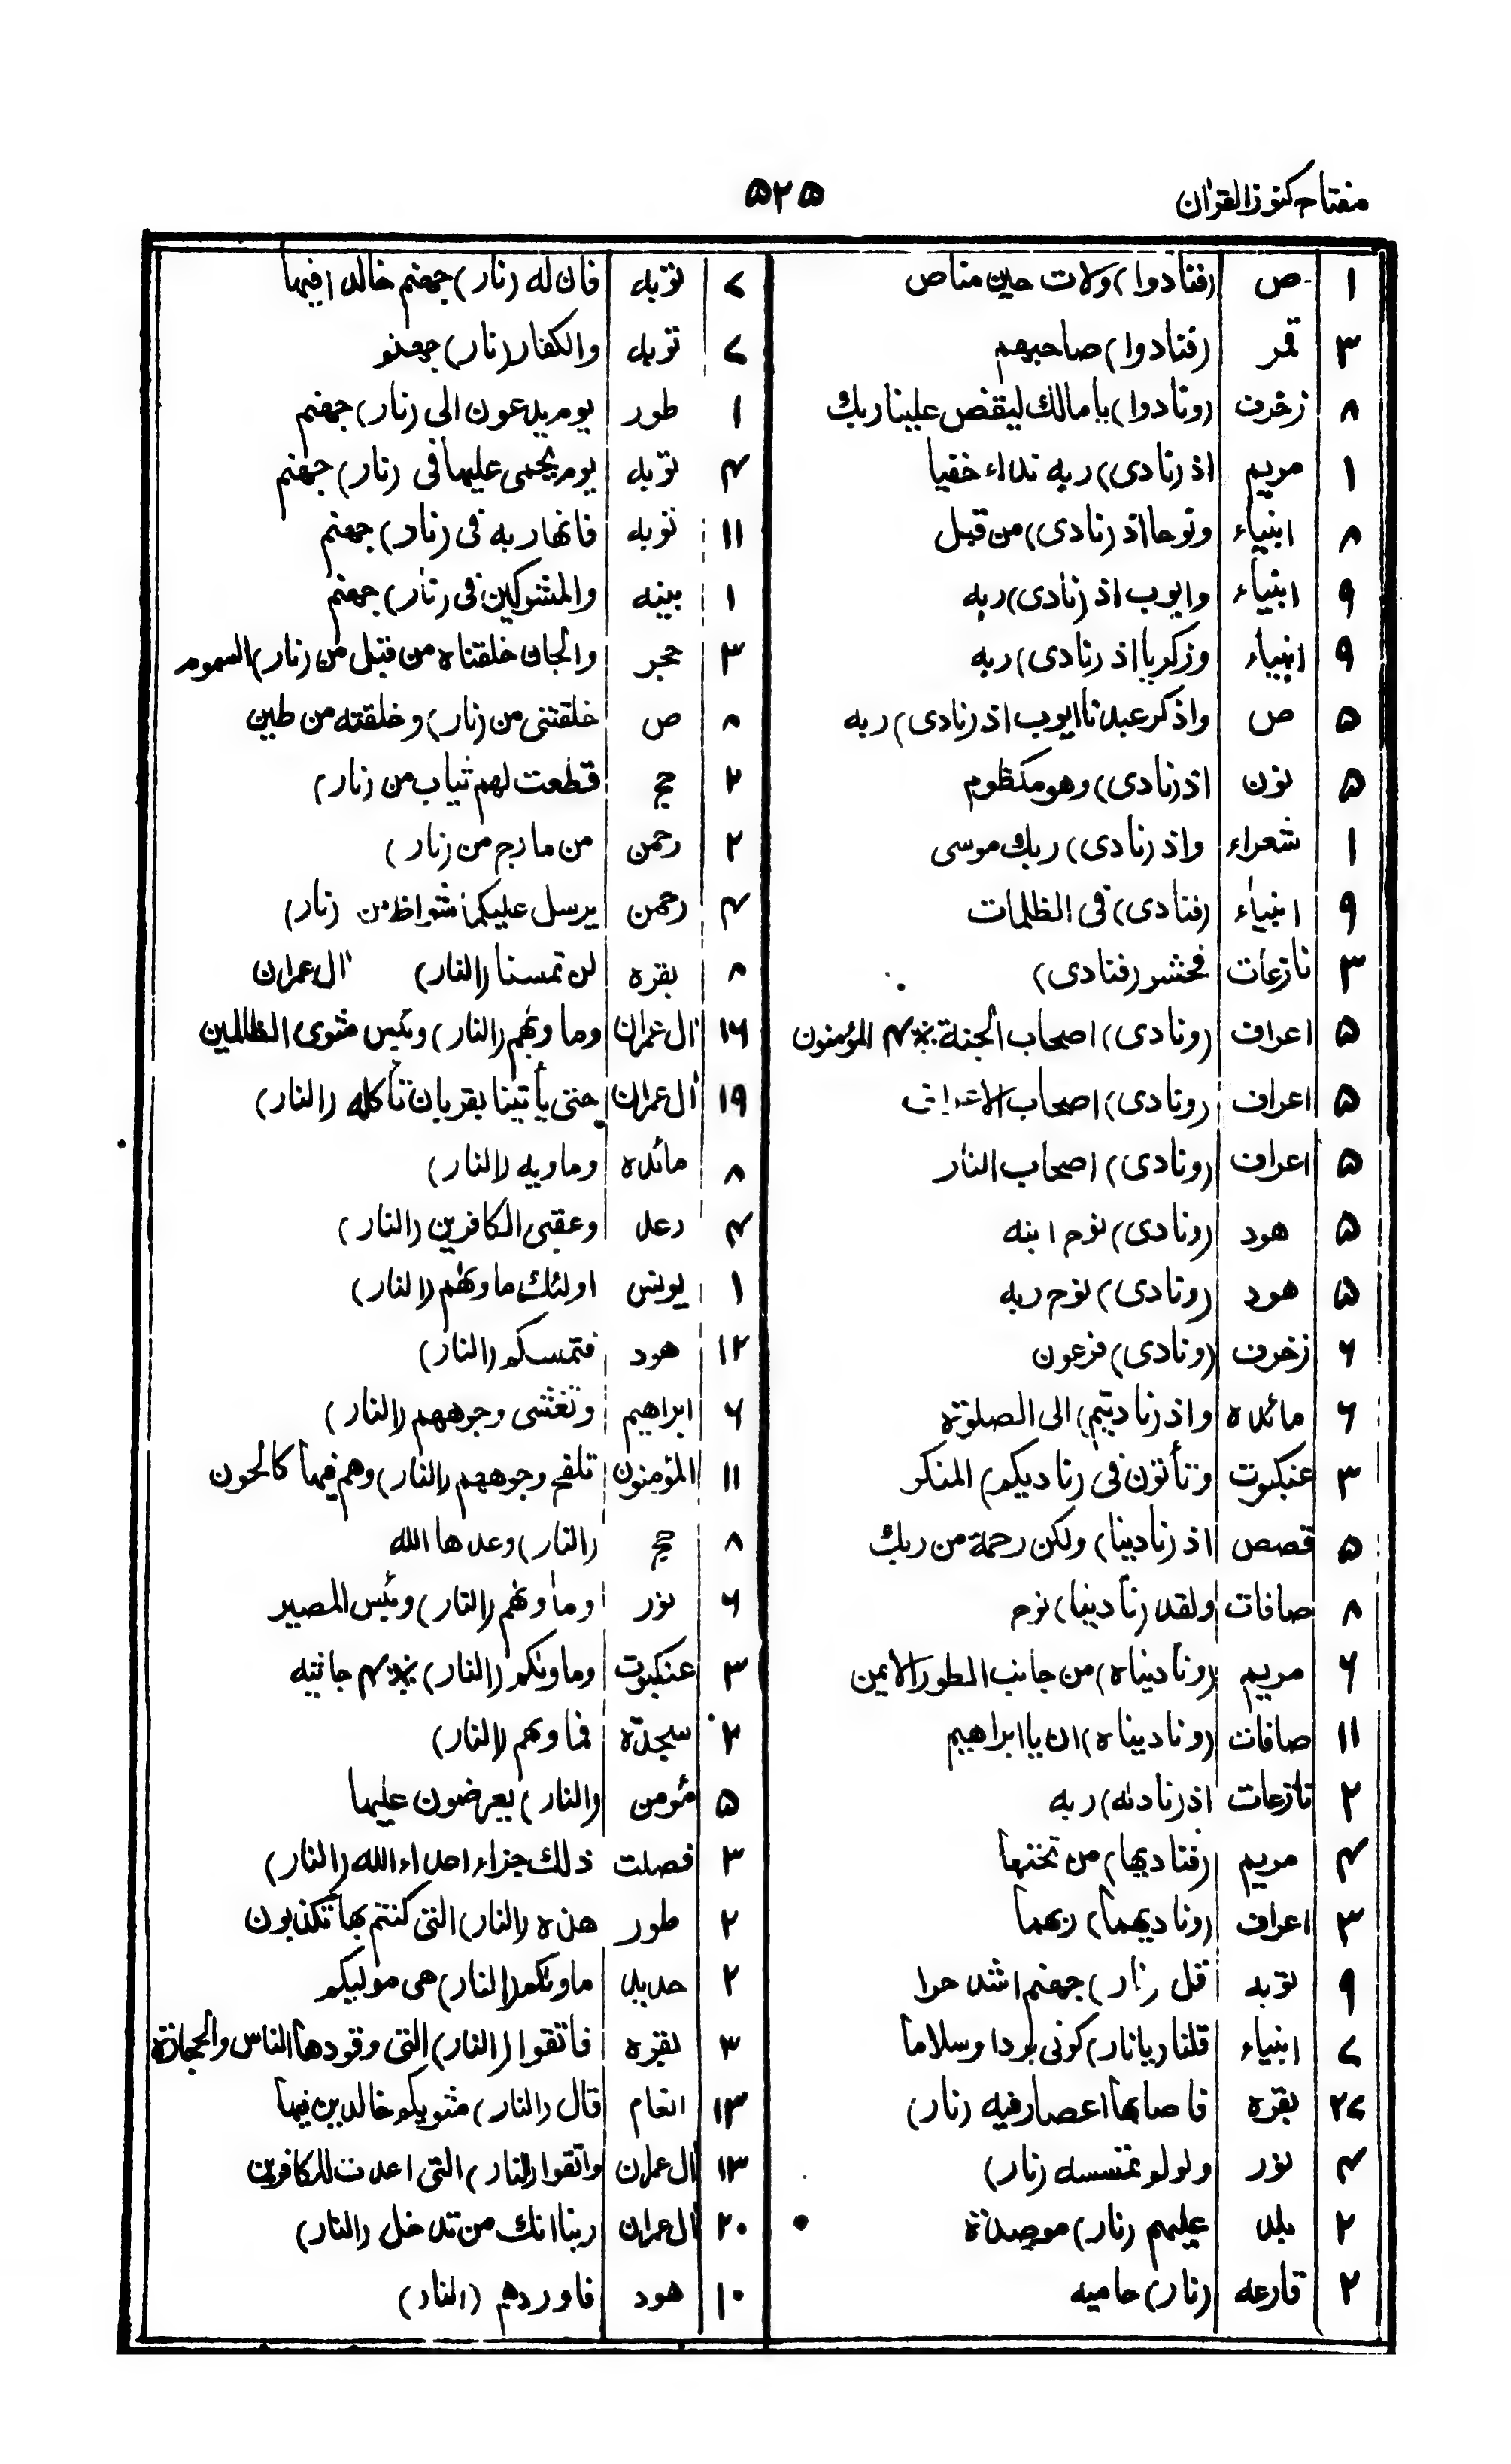 مفتاح کنوز القرآن
۵۲۵
۱ ص (فنادوا) ولات حین مناص
۳ قمر (فنادوا) صاحبهم
۸ زخرف (ونادوا) یا مالك لیقض علینا ربك
۱ مریم اذ (نادی) ربه نداء خفیا
۸ انبیاء ونوحا اذ (نادی) من قبل
۹ انبیاء وایوب اذ (نادی) ربه
۹ انبیاء وزکریا اذ (نادی) ربه
۵ ص واذکر عبدنا ایوب اذ (نادی) ربه
۵ نون اذ (نادی) وهو مکظوم
۱ شعراء واذ (نادی) ربك موسی
۹ انبیاء (فنادی) فی الظلمات
۳ نازعات فحشر (فنادی)
۵ اعراف (ونادی) اصحاب الجنة المؤمنون
۵ اعراف (ونادی) اصحاب الاعراف
۵ اعراف (ونادی) اصحاب النار
۵ هود (ونادی) نوح ابنه
۵ هود (ونادی) نوح ربه
۶ زخرف (ونادی) فرعون
۶ مائده واذ (نادیتم) الی الصلوة
۳ عنکبوت وتأتون فی (نادیکم) المنکر
۵ قصص اذ (نادینا) ولکن رحمة من ربك
۸ صافات ولقد (نادینا) نوح
۶ مریم (ونادیناه) من جانب الطور الایمن
۱۱ صافات (ونادیناه) ان یا ابراهیم
۲ نازعات اذ (نادیه) ربه
۴ مریم (فنادیها) من تحتها
۳ اعراف (ونادیهما) ربهما
۹ توبه قل (نار) جهنم اشد حرا
۷ انبیاء قلنا (یانار) کونی بردا وسلاما
۲۷ بقره فاصابها اعصار فیه (نار)
۴ نور ولو لم تمسسه (نار)
۲ بلد علیهم (نار) موصدة
۲ قارعه (نار) حامیه
۷ توبه فان له (نار) جهنم خالدا فیها
۷ توبه والکفار (نار) جهنم
۱ طور یوم یدعون الی (نار) جهنم
۴ توبه یوم یحمی علیها فی (نار) جهنم
۱۱ توبه فانهار به فی (نار) جهنم
۱ بینه والمشرکین فی (نار) جهنم
۳ حجر والجان خلقناه من قبل من (نار) السموم
۸ ص خلقتنی من (نار) وخلقته من طین
۲ حج قطعت لهم ثیاب من (نار)
۲ رحمن من مارج من (نار)
۴ رحمن یرسل علیکما شواظ من (نار)
۸ بقره لن تمسنا (النار) آل عمران
۱۶ آل عمران وماویهم (النار) وبئس مثوی الظالمین
۱۹ آل عمران حتی یأتینا بقربان تأکله (النار)
۸ مائده وماویه (النار)
۴ رعد وعقبی الکافرین (النار)
۱ یونس اولئك ماویهم (النار)
۱۲ هود فتمسکم (النار)
۶ ابراهیم وتغشی وجوههم (النار)
۱۱ المؤمنون تلفح وجوههم (النار) وهم فیها کالحون
۸ حج (النار) وعدها الله
۶ نور وماویهم (النار) وبئس المصیر
۳ عنکبوت وماویکم (النار) جاثیه
۲ سجدة فماویهم (النار)
۵ مؤمن (النار) یعرضون علیها
۳ فصلت ذلك جزاء اعداء الله (النار)
۲ طور هذه (النار) التی کنتم بها تکذبون
۲ حدید ماویکم (النار) هی مولیکم
۳ بقره فاتقوا (النار) التی وقودها الناس والحجارة
۱۳ انعام قال (النار) مثویکم خالدین فیها
۱۳ آل عمران واتقوا (النار) التی اعدت للکافرین
۲۰ آل عمران ربنا انك من تدخل (النار)
۱۰ هود فاوردهم (النار)